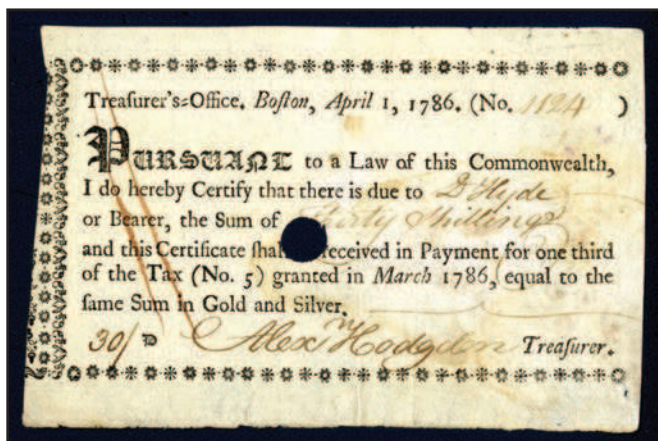 Treaſurer's=Office. Boſton, April 1, 1786. (No. 1124 )
PURSUANT to a Law of this Commonwealth,
I do hereby Certify that there is due to D Hyde
or Bearer, the Sum of Thirty Shillings
and this Certificate ſhall received in Payment for one third
of the Tax (No. 5) granted in March 1786, equal to the
ſame Sum in Gold and Silver.
30/ Alexr Hodgdon Treaſurer.